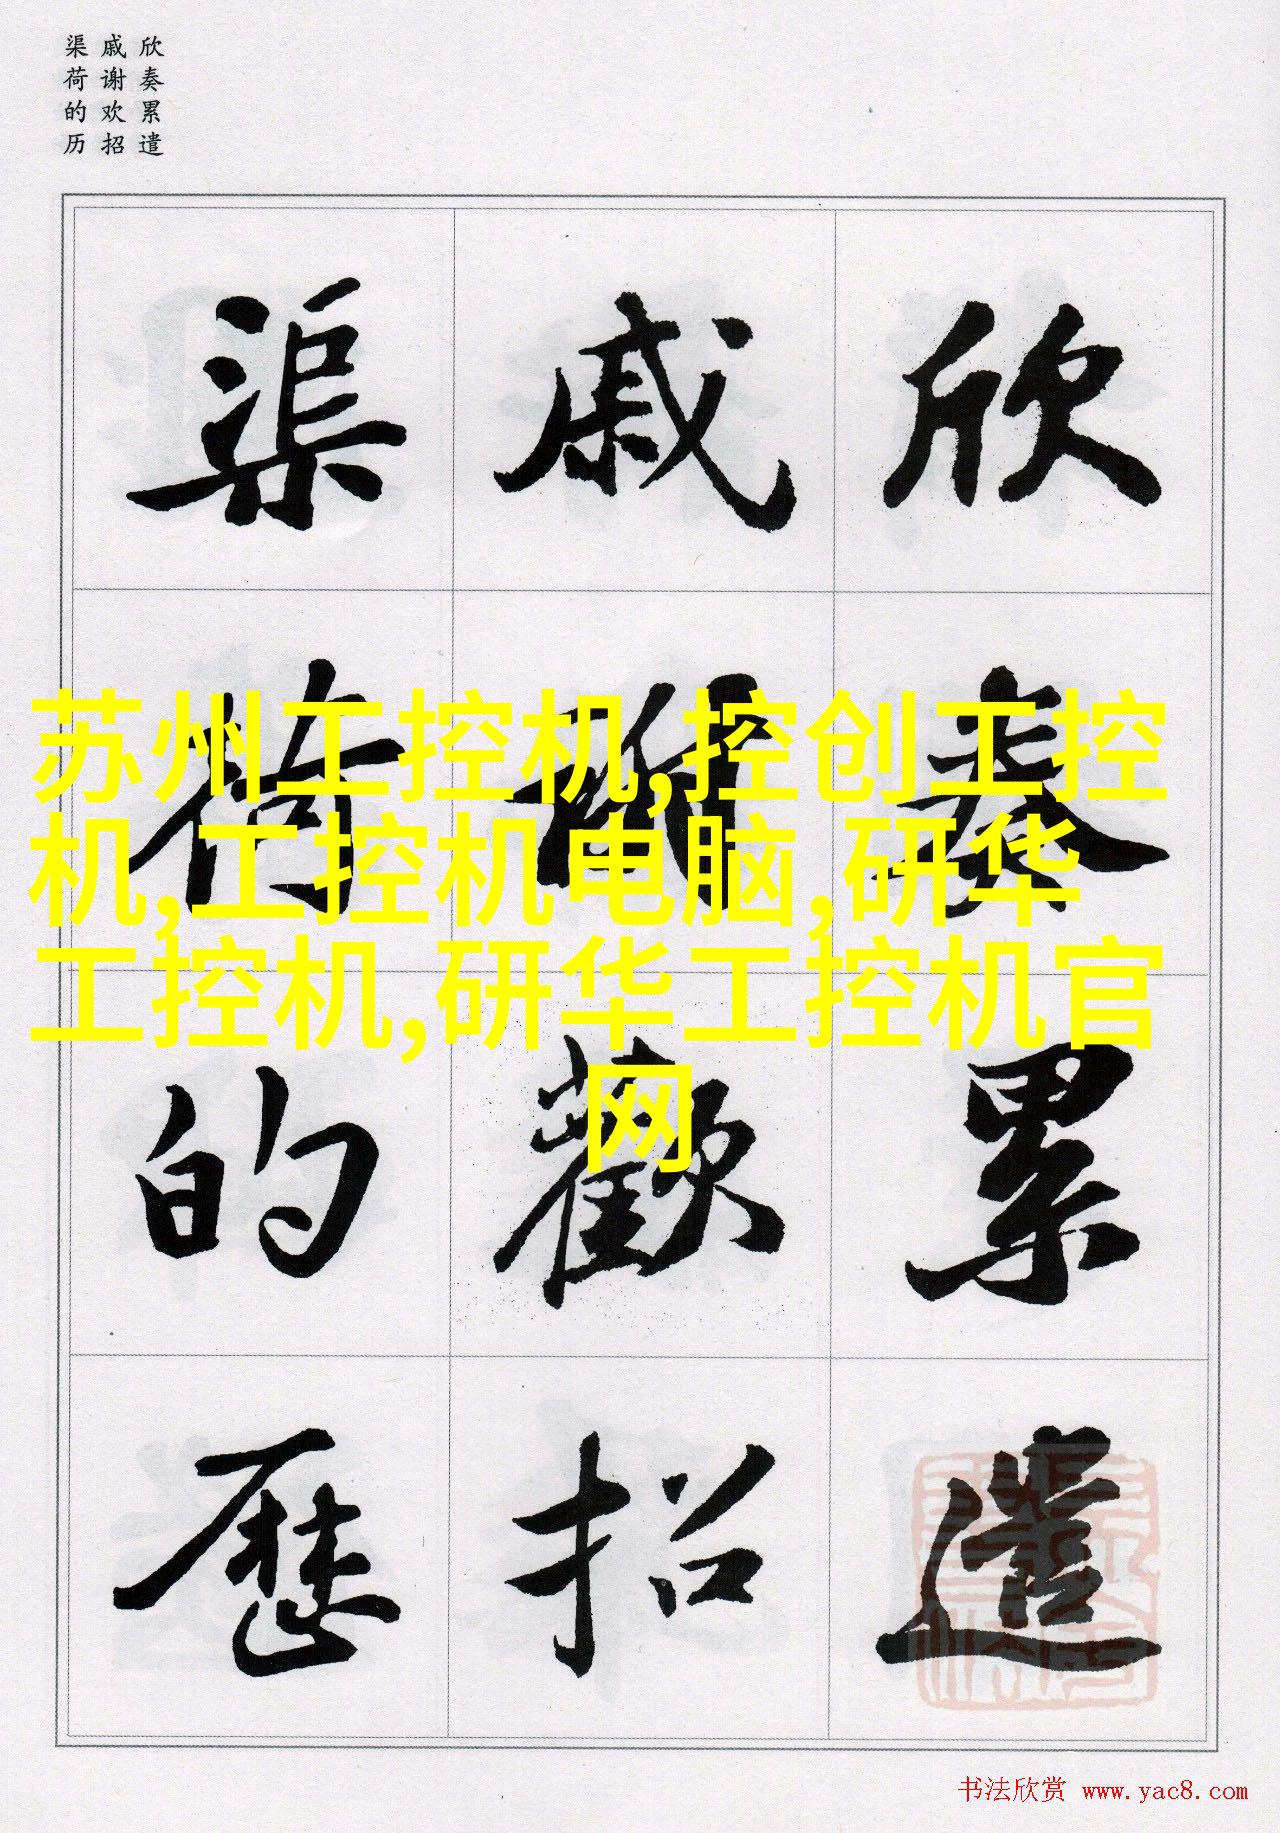 欣奏累遣
戚谢欢招
渠荷的历
欣奏累遣
戚謝歡招
渠荷的歷
苏州工控机,控创工控
机,工控机电脑,研华
工控机,研华工控机官
网
书法欣赏 www.yac8.com